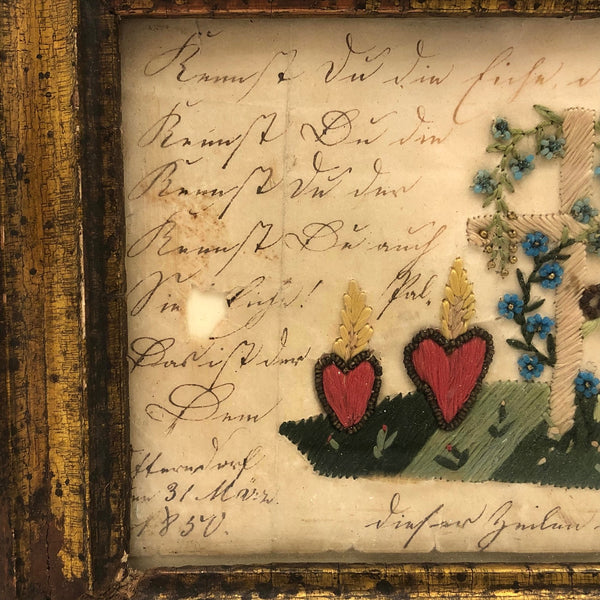 Kennst Du die Eiche, d
Kennst Du die
Kennst Du der
Kennst Du auch
Die Eiche! Pal,
Das ist der
Dem
Otterndorf
den 31 März.
1850.
dieser Zeilen